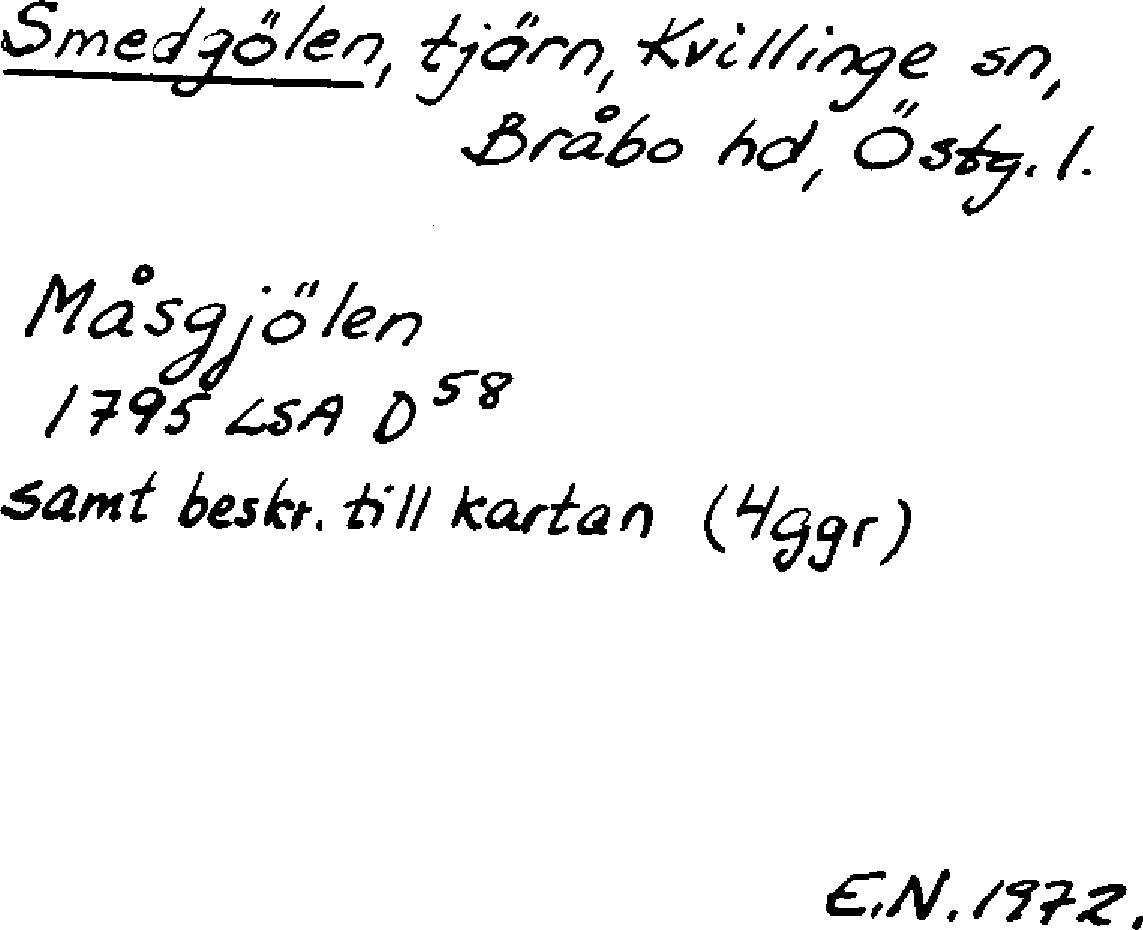 Smedgölen, tjärn, Kvillinge sn,
Bråbo hd, Östg. l.
Måsgjölen
1795 LSA D 58
samt beskr. till kartan (4ggr)
E.N. 1972.